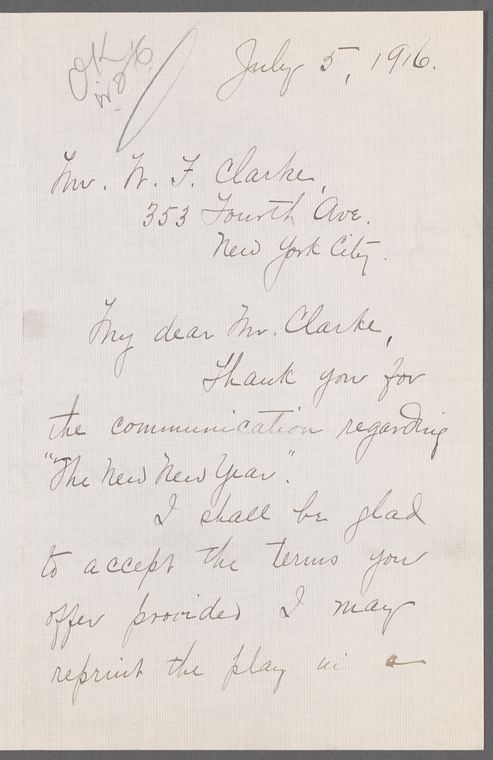 OK
July 5, 1916.
Mr. W. F. Clarke,
353 Fourth Ave.
New York City.
My dear Mr. Clarke,
Thank you for
the communication regarding
"The New New Year".
I shall be glad
to accept the terms you
offer provided I may
reprint the play in a